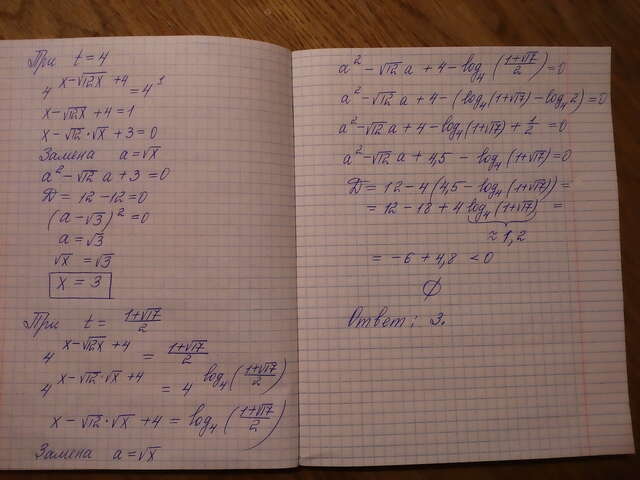 При t = 4
4^(x-√12x+4) = 4^1
x-√12x+4=1
x-√12·√x+3=0
Замена a=√x
a²-√12a+3=0
D=12-12=0
(a-√3)²=0
a=√3
√x=√3
x=3
При t = (1+√17)/2
4^(x-√12x+4) = (1+√17)/2
4^(x-√12·√x+4) = 4^(log₄((1+√17)/2))
x-√12·√x+4 = log₄((1+√17)/2)
Замена a=√x
a²-√12a+4-log₄((1+√17)/2)=0
a²-√12a+4-(log₄(1+√17)-log₄2)=0
a²-√12a+4-log₄(1+√17)+1/2=0
a²-√12a+4,5-log₄(1+√17)=0
D=12-4(4,5-log₄(1+√17))=
=12-18+4log₄(1+√17)=
≈1,2
=-6+4,8<0
∅
Ответ: 3.